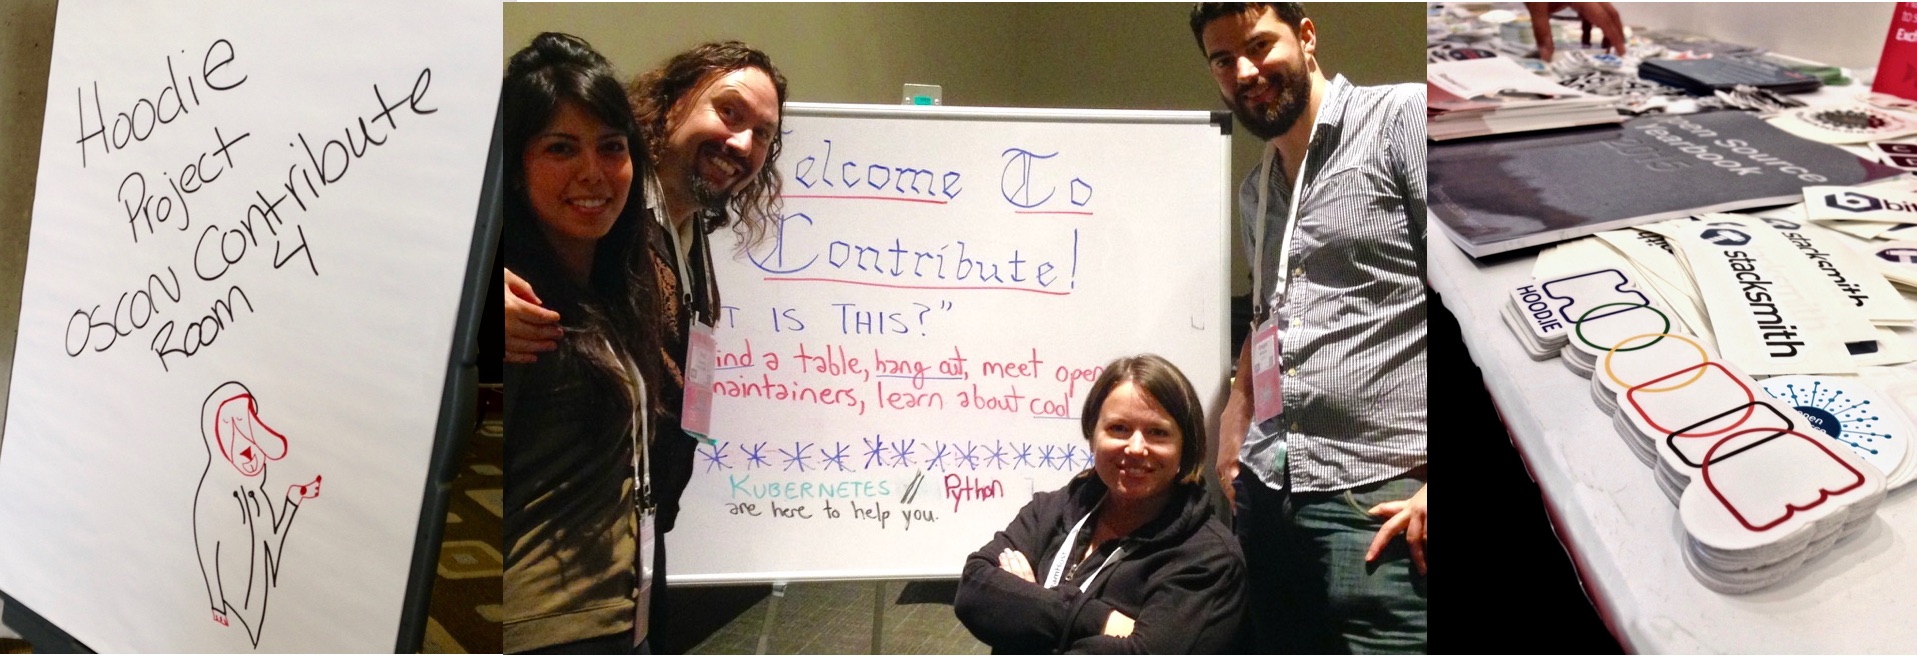 Hoodie
Project
OSCON Contribute
Room 4
elcome To
Contribute!
T IS THIS?"
ind a table, hang out, meet open
maintainers, learn about cool
KUBERNETES // Python
are here to help you.
Source
Yearbook
2015
bit
stacksmith
stacksmith
HOOD.IE
open